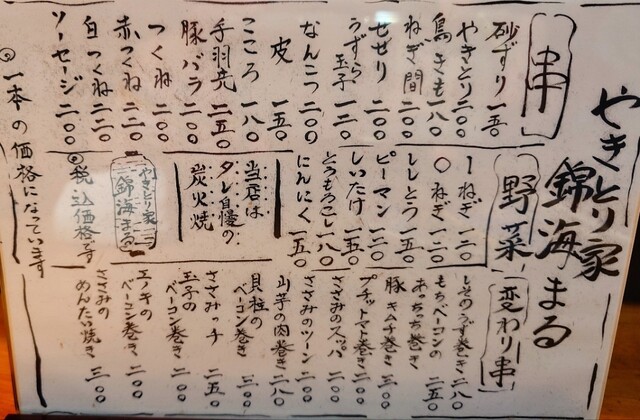 やきとり家
錦海まる
串
砂ずり 一五〇
やきとり 二〇〇
鳥きも 一八〇
ねぎ間 二〇〇
せせり 二〇〇
うずら玉子 一二〇
なんこつ 二〇〇
皮 一五〇
こころ 一八〇
手羽先 二五〇
豚バラ 二〇〇
つくね 二〇〇
赤つくね 二二〇
白つくね 二二〇
ソーセージ 二〇〇
◎一本の価格になっています
野菜
しねぎ 一二〇
〇ねぎ 一二〇
ししとう 一五〇
ピーマン 一二〇
しいたけ 一五〇
とうもろこし 一八〇
にんにく 一五〇
当店は
タレ自慢の
炭火焼
やきとり家
錦海まる
◎税込価格です
変わり串
しそのうず巻き 二八〇
もちベーコンの
あっちっち巻き 二五〇
豚キムチ巻き 三〇〇
プチトマト巻き 二〇〇
ささみのスッパ 二〇〇
ささみのツーン 二〇〇
山芋の肉巻き 二八〇
貝柱の
ベーコン巻き 三〇〇
ささみっチ 二五〇
玉子の
ベーコン巻き 二〇〇
エノキの
ベーコン巻き 二〇〇
ささみの
めんたい焼き 三〇〇